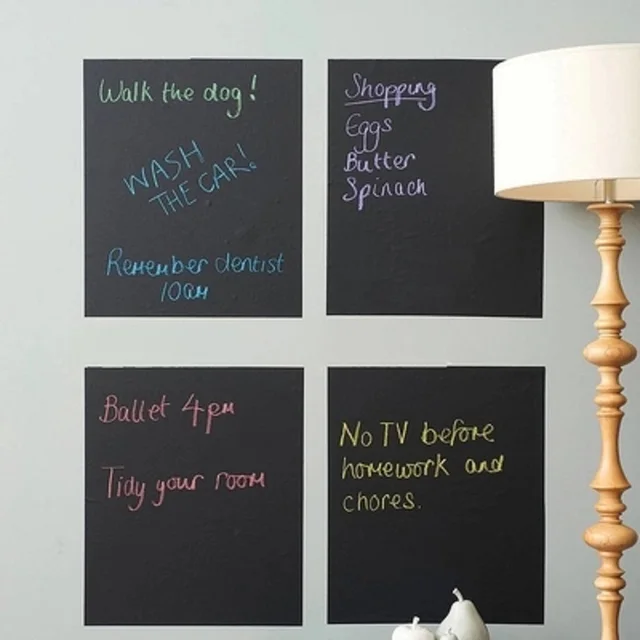 Walk the dog!
WASH
THE CAR!
Remember dentist
10am
Shopping
Eggs
Butter
Spinach
Ballet 4pm
Tidy your room
No TV before
homework and
chores.